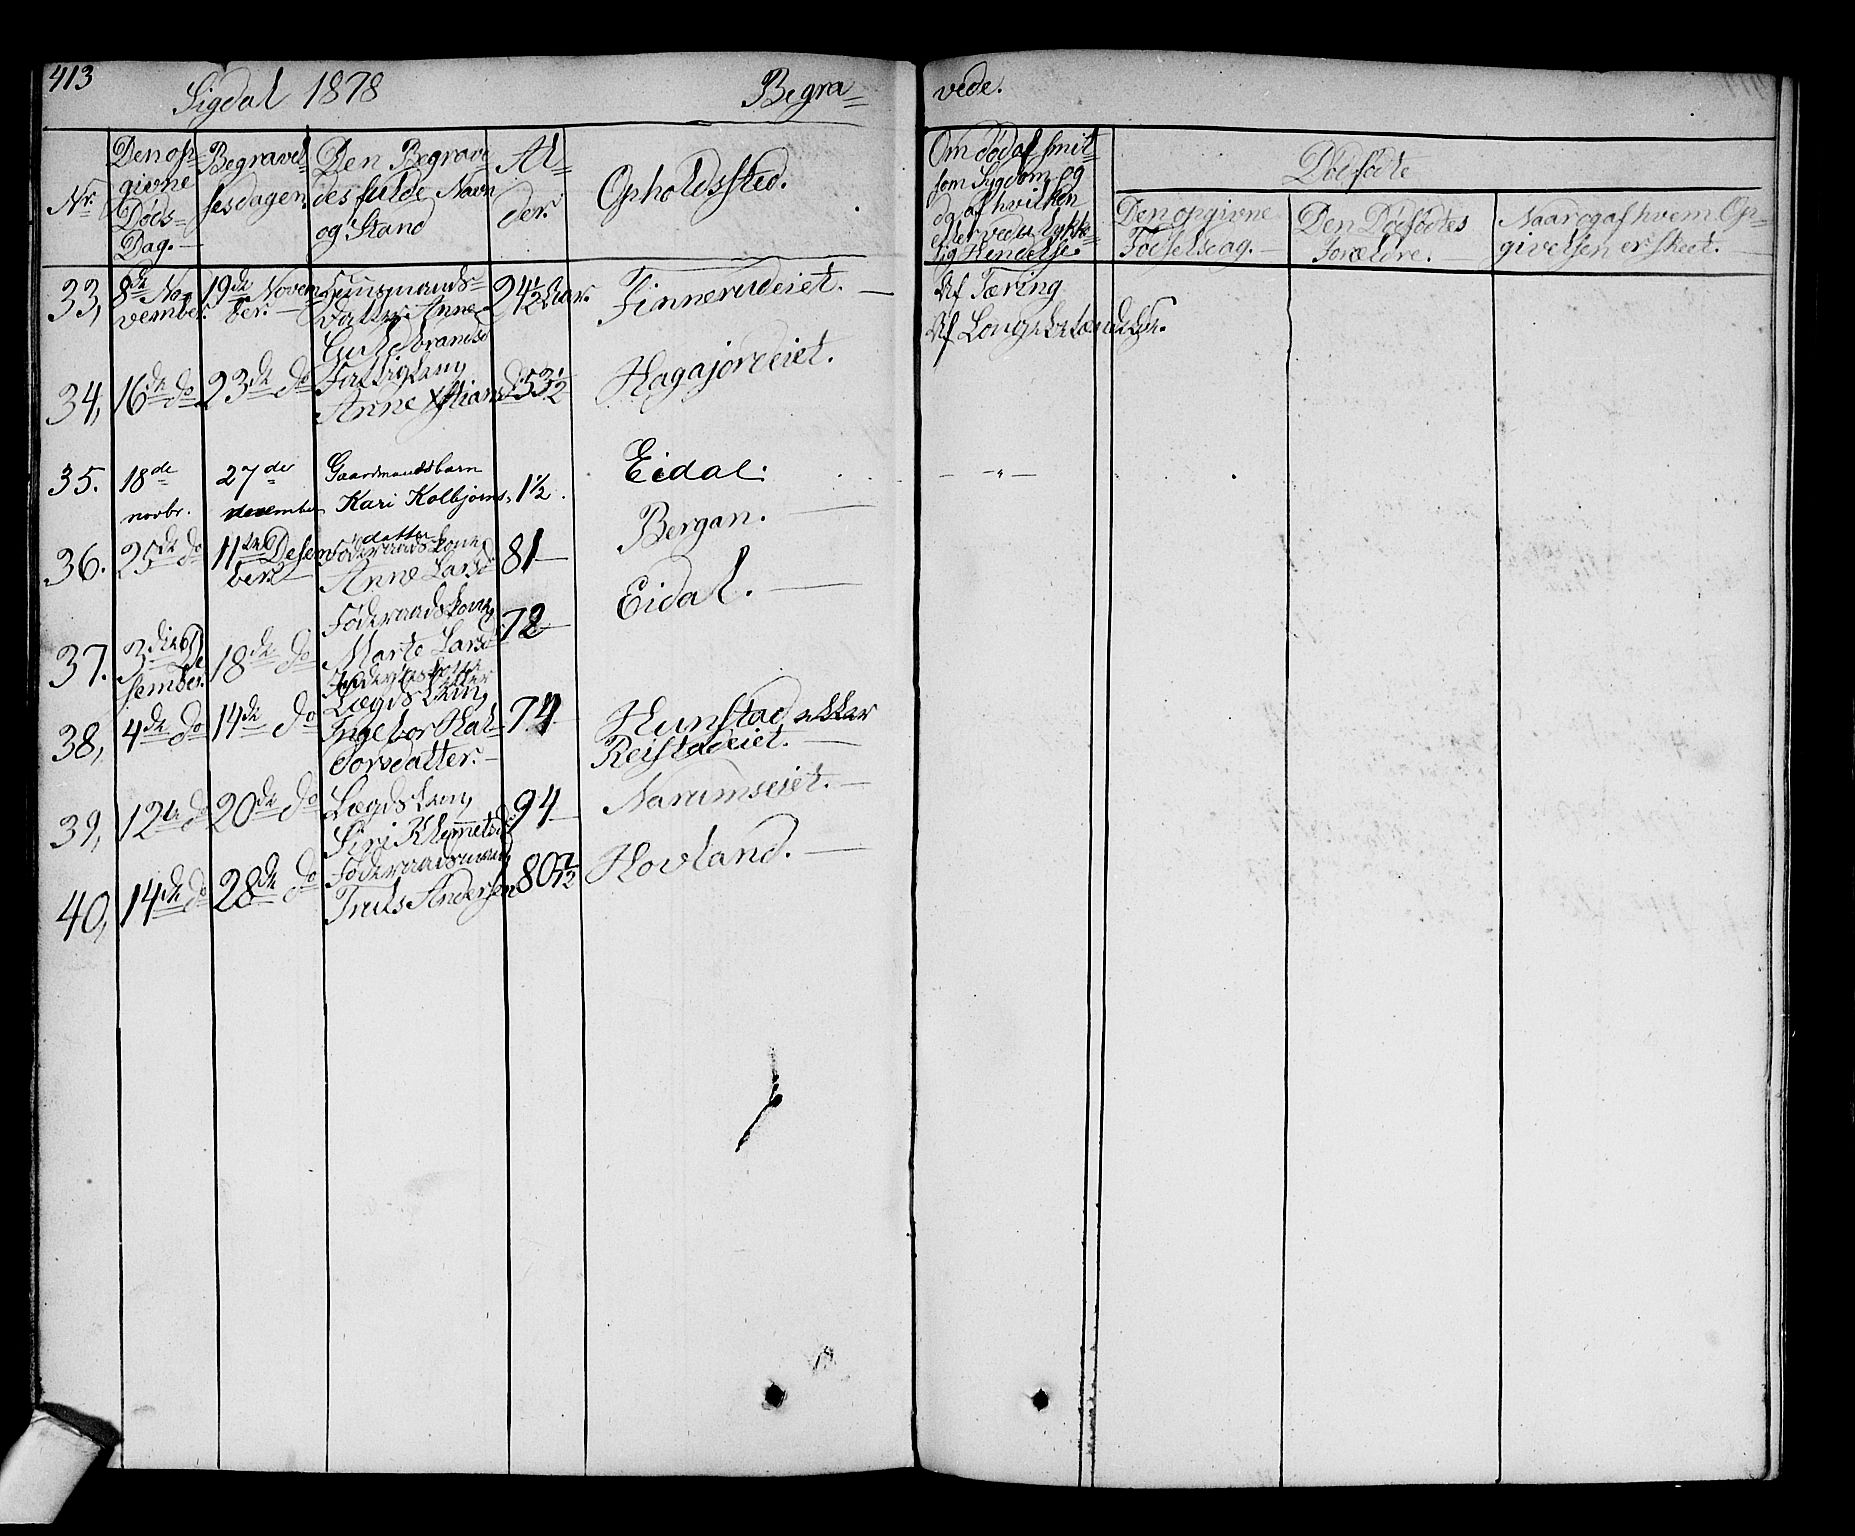 413
Sigdal 1878
Begra=
vede.
Nr.
Den op=
givne
Døds=
Dag.
Begravel
sesdagen.
Den Begrave
des fulde Navn
og Stand
Al=
der.
Opholdssted.
Om død af smit=
som Sygdom og
da af hvilken
eller ved ulykke=
lig Hendelse.
Dødfødte
Den opgivne
Fødselsdag.
Den Dødfødtes
Forældre.
Naar og af hvem Op=
givelsen er skeet.
33, 8de No=
vember.
19de Novem
ber.
Huusmands=
datter Anne
Guldbrandsd
24½ Aar.
Finnerudeiet.
Af Tæring
34, 16de do
23de do
Fattiglem
Anne Xstiansd
53½
Hagajordeiet.
Af
35. 18de
novbr.
27de
december
Gaardmandsbarn
Kari Kolbjørns,
datter
1½.
Eidal.
36. 25de do
11te Desem
ber.
Føderaadskone
Anne Larsd
81
Bergan.
37. 3die De
sember.
18de do
Føderaadskone
Marte Larsd
78
Eidal.
38, 4de do
14de do
Lægdslem
Ingebor Hal=
vorsdatter.
74
Hunstad
Reistadeiet.
39, 12te do
20de do
Lægdslem
Siri Klemetsd
94
Narumseiet.
40, 14de do
28de do
Føderaadsmand
Truls Andersen
80½
Hovland.